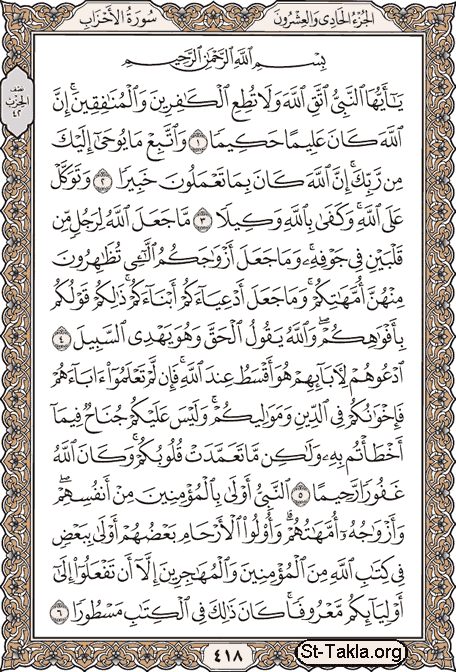 الجزء الحادى والعشرون
سورة الأحزاب
نصف
الحزب
٤٢
بِسْمِ اللَّهِ الرَّحْمَٰنِ الرَّحِيمِ
يَٰٓأَيُّهَا ٱلنَّبِيُّ ٱتَّقِ ٱللَّهَ وَلَا تُطِعِ ٱلْكَٰفِرِينَ وَٱلْمُنَٰفِقِينَ ۗ إِنَّ
ٱللَّهَ كَانَ عَلِيمًا حَكِيمًا ١ وَٱتَّبِعْ مَا يُوحَىٰٓ إِلَيْكَ
مِن رَّبِّكَ ۚ إِنَّ ٱللَّهَ كَانَ بِمَا تَعْمَلُونَ خَبِيرًا ٢ وَتَوَكَّلْ
عَلَى ٱللَّهِ ۚ وَكَفَىٰ بِٱللَّهِ وَكِيلًا ٣ مَّا جَعَلَ ٱللَّهُ لِرَجُلٍ مِّن
قَلْبَيْنِ فِي جَوْفِهِۦ ۚ وَمَا جَعَلَ أَزْوَٰجَكُمُ ٱلَّٰٓـِٔي تُظَٰهِرُونَ
مِنْهُنَّ أُمَّهَٰتِكُمْ ۚ وَمَا جَعَلَ أَدْعِيَآءَكُمْ أَبْنَآءَكُمْ ۚ ذَٰلِكُمْ قَوْلُكُم
بِأَفْوَٰهِكُمْ ۖ وَٱللَّهُ يَقُولُ ٱلْحَقَّ وَهُوَ يَهْدِي ٱلسَّبِيلَ ٤
ٱدْعُوهُمْ لِءَابَآئِهِمْ هُوَ أَقْسَطُ عِندَ ٱللَّهِ ۚ فَإِن لَّمْ تَعْلَمُوٓا۟ ءَابَآءَهُمْ
فَإِخْوَٰنُكُمْ فِي ٱلدِّينِ وَمَوَٰلِيكُمْ ۚ وَلَيْسَ عَلَيْكُمْ جُنَاحٌ فِيمَآ
أَخْطَأْتُم بِهِۦ وَلَٰكِن مَّا تَعَمَّدَتْ قُلُوبُكُمْ ۚ وَكَانَ ٱللَّهُ
غَفُورًا رَّحِيمًا ٥ ٱلنَّبِيُّ أَوْلَىٰ بِٱلْمُؤْمِنِينَ مِنْ أَنفُسِهِمْ ۖ
وَأَزْوَٰجُهُۥٓ أُمَّهَٰتُهُمْ ۗ وَأُو۟لُوا۟ ٱلْأَرْحَامِ بَعْضُهُمْ أَوْلَىٰ بِبَعْضٍ
فِي كِتَٰبِ ٱللَّهِ مِنَ ٱلْمُؤْمِنِينَ وَٱلْمُهَٰجِرِينَ إِلَّآ أَن تَفْعَلُوٓا۟ إِلَىٰٓ
أَوْلِيَآئِكُم مَّعْرُوفًا ۚ كَانَ ذَٰلِكَ فِي ٱلْكِتَٰبِ مَسْطُورًا ٦
٤١٨
St-Takla.org